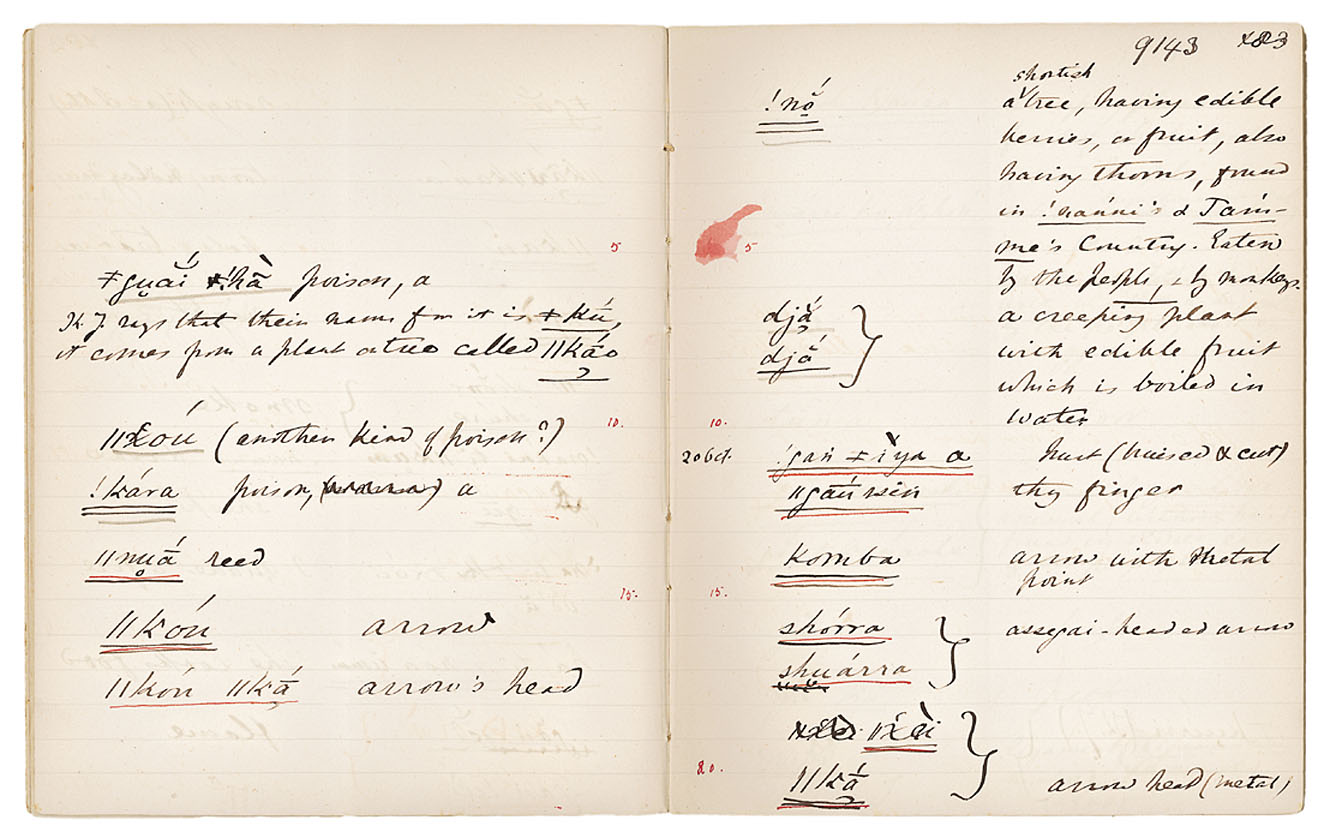 5
ǂgu̯ắi ǂhằ poison, a
H. J. says that their name for it is ǂkú,
it comes from a plant or tree called ǁkáo
10.
ǁx̌óú (another kind of poison?)
!kára poison, a
ǁnu̯á reed
15.
ǁkóú arrow
ǁkóú ǁkā́ arrow's head
9143
!nọ̆́
shortish
a tree, having edible
berries, or fruit, also
having thorns, found
in !nanni's & Tam-
me's Country. Eaten
5
by the people, & by monkeys.
djắ
a creeping plant
djā́
with edible fruit
which is boiled in
water
10.
20 Oct.
!gań ǂì̯ya a hurt (bruised & cut)
ǁgaú ssin thy finger
komba arrow with metal
point
15.
shórra assegai-headed arrow
shuárra
ǁx̌ài
20.
ǁkā́ arrow head (metal)